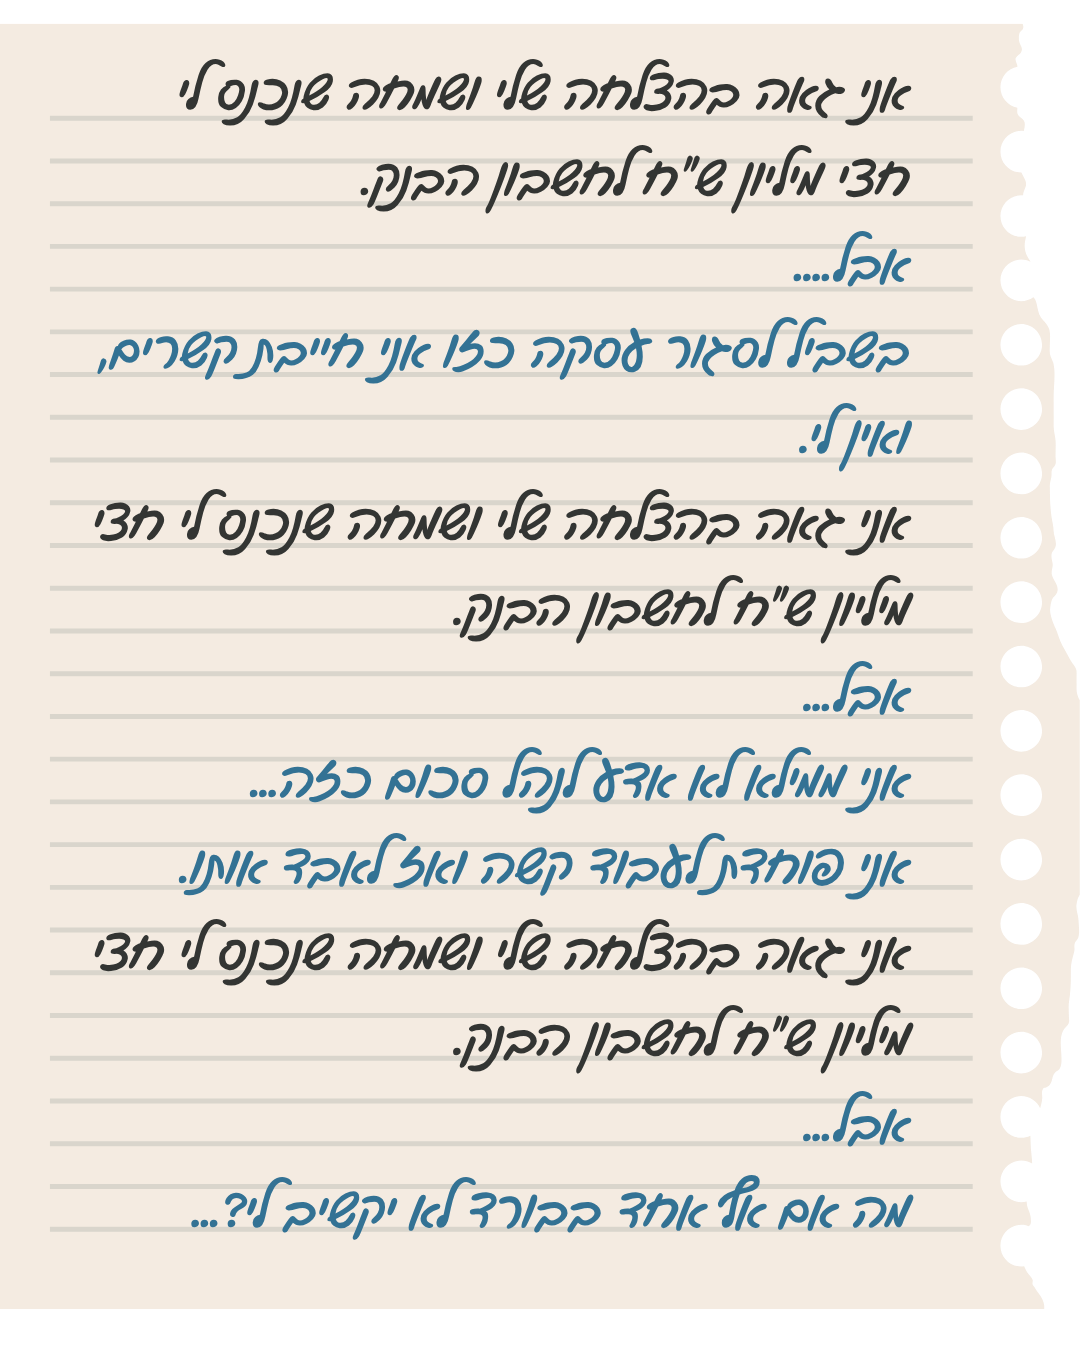 אני גאה בהצלחה שלי ושמחה שנכנס לי
חצי מיליון ש"ח לחשבון הבנק.
אבל.....
בשביל לסגור עסקה כזו אני חייבת קשרים,
ואין לי.
אני גאה בהצלחה שלי ושמחה שנכנס לי חצי
מיליון ש"ח לחשבון הבנק.
אבל...
אני ממילא לא אדע לנהל סכום כזה...
אני פוחדת לעבוד קשה ואז לאבד אותו.
אני גאה בהצלחה שלי ושמחה שנכנס לי חצי
מיליון ש"ח לחשבון הבנק.
אבל...
מה אם אף אחד בבורד לא יקשיב לי?...